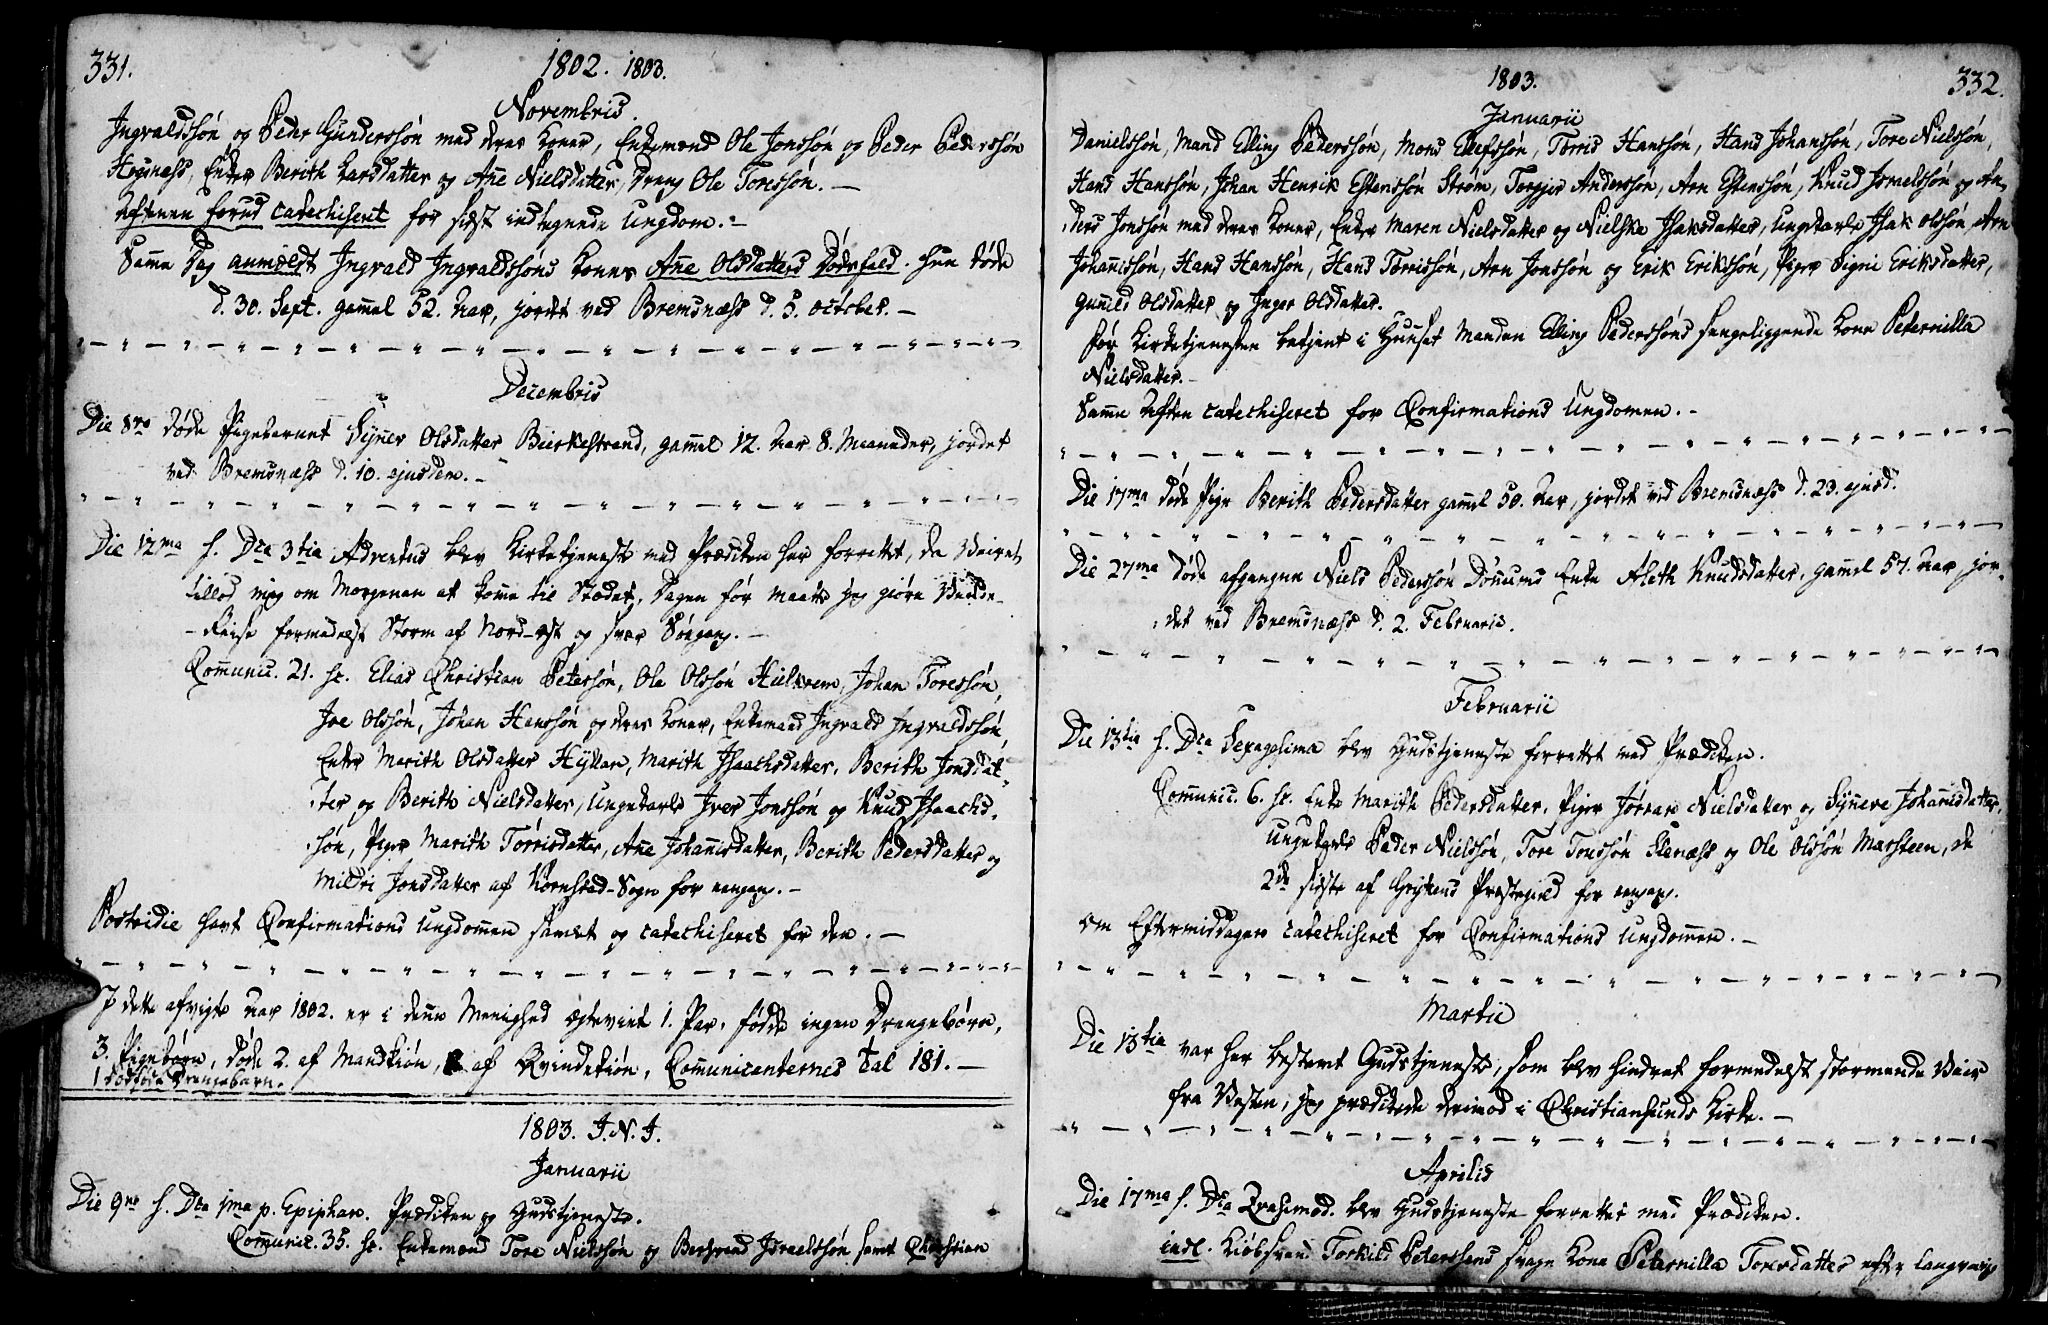 331.
1802. 1803.
Novembris.
Ingvaldssøn og Peder Gunderssøn med deres Koner, Enkemænd Ole Jonssøn og Peder Pederssøn
Høgnæss, Enker Berith Larsdatter og Añe Nielsdatter, Dreng Ole Toressøn. —
Aftenen forud catechiseret for sidst indtegnede Ungdom. —
Samme Dag anmeldt Ingvald Ingvaldssøns Kones Añe Olsdatters Dødsfald. hun døde
d. 30. Sept. gam̄el 52. Aar, jordet ved Bremsnæss d. 5. october. —
Decembris
Die 8vo døde Pigebarnet Syñev Olsdatter Bierkestrand, gam̄el 12. Aar 8. Maaneder, jordet
ved Bremsnæss d. 10. ejusdem. —
Die 12ma s. Dca 3tia Adventus blev Kirketjeneste med Prædiken her forrettet, da Veiret
tillod mig om Morgenen at kom̄e til Stædet, Dagen før maatte jeg giøre Vende-
-Reise formedelst Storm af Nord-ost og svær Søegang. —
Com̄unic. 21. sc. Elias Christian Peterssøn, Ole Olssøn Hielkrem, Johan Toressøn,
Joe Olssøn, Johan Hanssøn og deres Koner, Enkemand Ingvald Ingvaldssøn,
Enker Merith Olsdatter Hyllan, Marith Isaachsdatter, Berith Jonsdat-
-ter og Berith Nielsdatter, Ungekarle Iver Jonssøn og Knud Isaachs-
-søn, Piger Marith Torrisdatter, Añe Johañisdatter, Berith Pedersdatter og
Mildri Jonsdatter af Kornstad-Sogn for eengang. —
Postridie havt Confirmations Ungdom̄en samlet og catechiseret for den. —
I dette afvigte Aar 1802. er i deñe Menighed ægteviet 1. Par, fødde ingen Drengebørn,
3. Pigebørn, døde 2. af Mandkiøn, af Qvindekiøn, Com̄unicanternes tal 181. —
1 dødfødt Drengebarn.
1803. I.N.I.
Januarii
Die 9no s. Dca 1ma p. Epiphan. Prædiken og Gudstjeneste.
Com̄unic. 35. sc. Enkemænd Tore Nielssøn og Bersvend Israelssøn samt Christian
332.
1803.
Januarii
Danielssøn, Mænd Elling Pederssøn, Mons Ellefssøn, Torris Hanssøn, Hans Johanssøn, Tore Nielssøn,
Hans Hanssøn, Johan Henrik Estenssøn Strøm, Torgjer Anderssøn, Arn Estenssøn, Knud Israelssøn og An-
-ders Jonssøn med deres Koner, Enker Maren Nielsdatter og Nielske Isaksdatter, Ungekarle Isak Olssøn, Arn
Johañissøn, Hans Hanssøn, Hans Torrissøn, Arn Jonssøn og Erik Erikssøn, Piger Signi Eriksdatter,
Guñild Olsdatter og Inger Olsdatter.
før Kirketjenesten betjent i Huuset Manden Elling Pederssøns sengeliggende Kone Peternilla
Nielsdatter. —
Sam̄e Aften catechiseret for Confirmations Ungdomen. —
Die 17ma døde Pige Berith Pedersdatter gam̄el 50. Aar, jordet ved Bremsnæss d. 23. ejusd.
Die 27ma døde afgangne Niels Pederssøn Døñums Enke Aleth Knudsdatter, gam̄el 57. Aar, jor-
-det ved Bremsnæss d. 2. Februarii.
Februarii
Die 13tia s. Dca Sexagesima blev Gudstjeneste forrettet med Prædiken.
Com̄unic. 6. sc. Enke Marith Pedersdatter, Piger Jørran Nielsdatter og Syñeve Johañisdatter,
Ungekarle Peder Nielssøn, Tore Tonssøn Stenæss og Ole Olssøn Marsteen, de
2de sidste af Grytens Præstegield for eengang.
om Eftermiddagen catechiseret for Confirmations Ungdom̄en. —
Martii
Die 13tia var her bestemt Gudstjeneste, som blev hindret formedelst stormende Veir
fra Vesten, jeg prædikede derimod i Christiansunds Kirke. —
Aprilis
Die 17ma s. Dca Qvasimod. blev Gudstjeneste forrettet med Prædiken.
indl. Kiøbsvend Torkild Peterssens svage Kone Peternilla Toresdatter efter langvarig